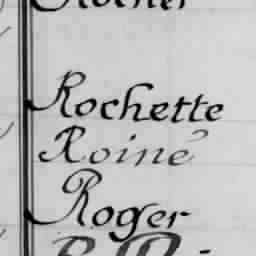 Rochette
Roiné
Roger